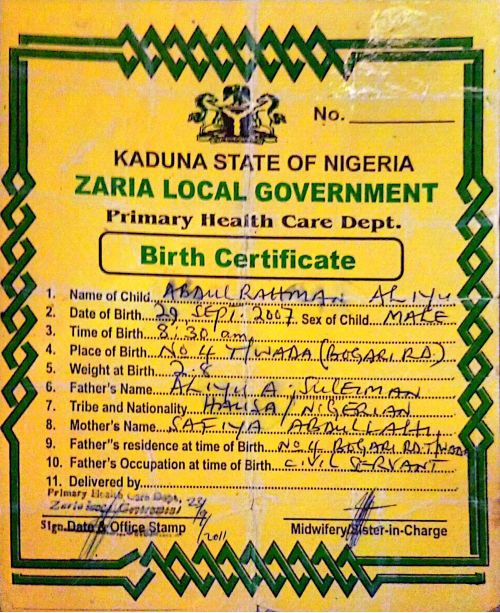 No.
KADUNA STATE OF NIGERIA
ZARIA LOCAL GOVERNMENT
Primary Health Care Dept.
Birth Certificate
1. Name of Child ABDULRAHMAN ALIYU
2. Date of Birth 29 SEPT. 2007 Sex of Child MALE
3. Time of Birth 8:30 am
4. Place of Birth NO 4 T/WADA (BOGARI RD)
5. Weight at Birth 2.8
6. Father's Name ALIYU A. SULEIMAN
7. Tribe and Nationality HAUSA / NIGERIAN
8. Mother's Name SAFIYA ABDULLAHI
9. Father"s residence at time of Birth NO 4 BOGARI RD T/WADA
10. Father's Occupation at time of Birth CIVIL SERVANT
11. Delivered by
Primary Health Care Dept,
Zaria Local Government
2011
Sign. Date & Office Stamp Midwifery/Sister-in-Charge